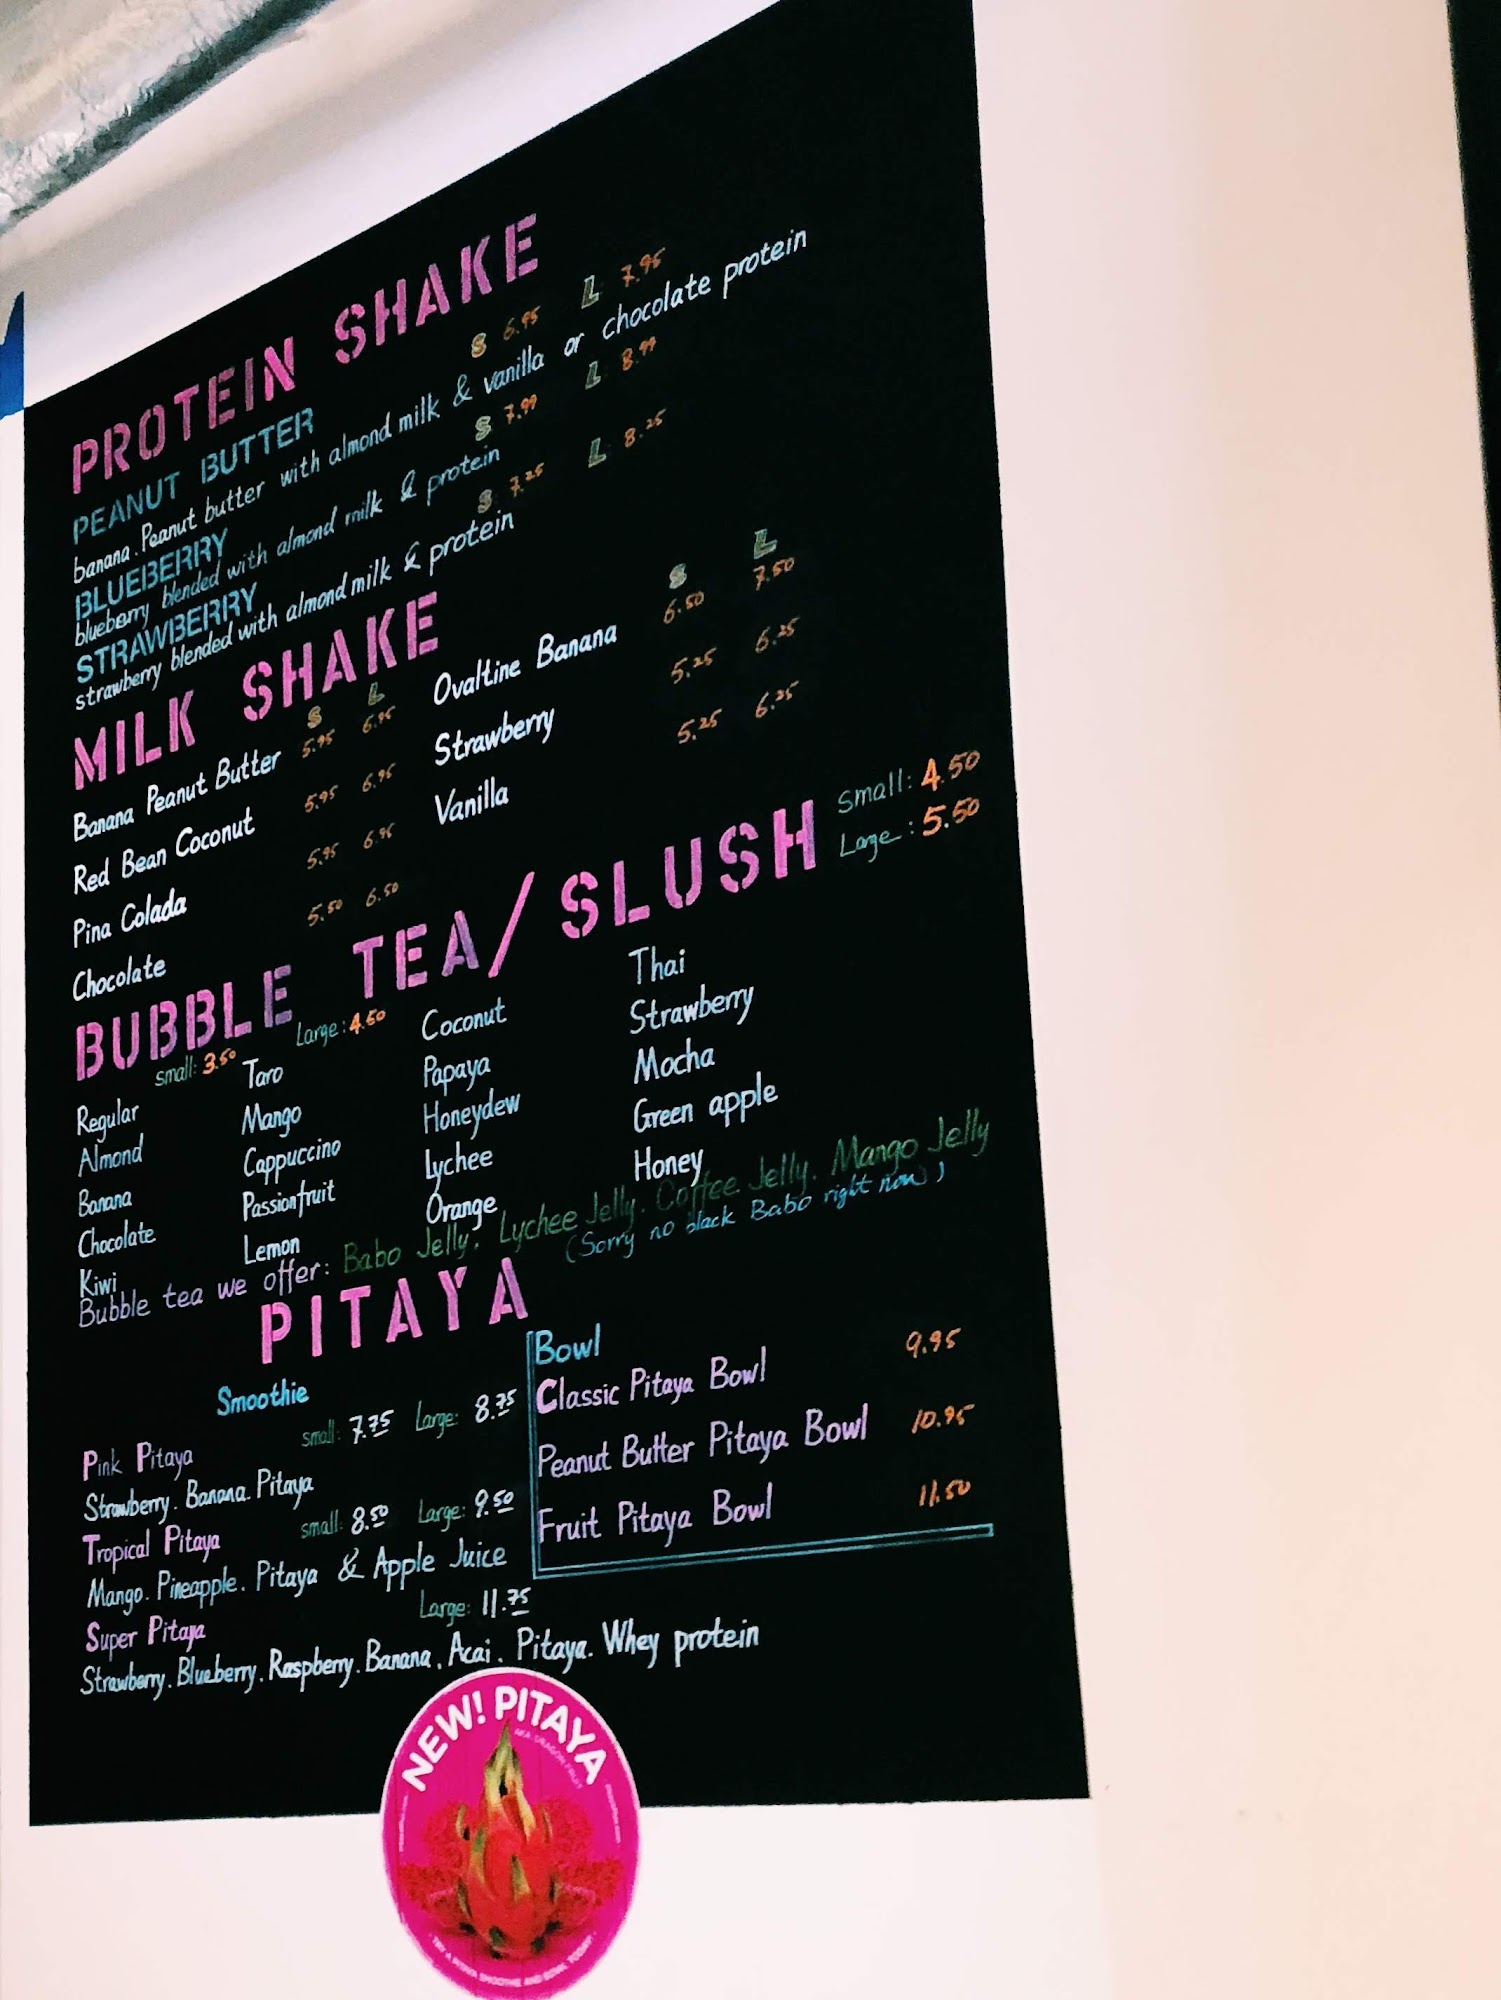 PROTEIN SHAKE
PEANUT BUTTER S 6.95 L 7.95
banana. Peanut butter with almond milk & vanilla or chocolate protein
BLUEBERRY S 7.99 L 8.99
blueberry blended with almond milk & protein
STRAWBERRY S 7.25 L 8.25
strawberry blended with almond milk & protein
MILK SHAKE
S L
Banana Peanut Butter 5.95 6.95
Red Bean Coconut 5.95 6.95
Pina Colada 5.95 6.95
Chocolate 5.50 6.50
S L
Ovaltine Banana 6.50 7.50
Strawberry 5.25 6.25
Vanilla 5.25 6.25
BUBBLE TEA/SLUSH
small: 3.50 Large: 4.50
Small: 4.50
Large: 5.50
Regular
Almond
Banana
Chocolate
Kiwi
Taro
Mango
Cappuccino
Passionfruit
Lemon
Coconut
Papaya
Honeydew
Lychee
Orange
Thai
Strawberry
Mocha
Green apple
Honey
Bubble tea we offer: Babo Jelly. Lychee Jelly. Coffee Jelly. Mango Jelly
(Sorry no black Babo right now)
PITAYA
Smoothie
Pink Pitaya small: 7.75 Large: 8.75
Strawberry. Banana. Pitaya
Tropical Pitaya small: 8.50 Large: 9.50
Mango. Pineapple. Pitaya & Apple Juice
Super Pitaya Large: 11.75
Strawberry. Blueberry. Raspberry. Banana. Acai. Pitaya. Whey protein
Bowl
Classic Pitaya Bowl 9.95
Peanut Butter Pitaya Bowl 10.95
Fruit Pitaya Bowl 11.50
NEW! PITAYA
AKA DRAGON FRUIT
TRY A PITAYA SMOOTHIE AND BOWL TODAY!